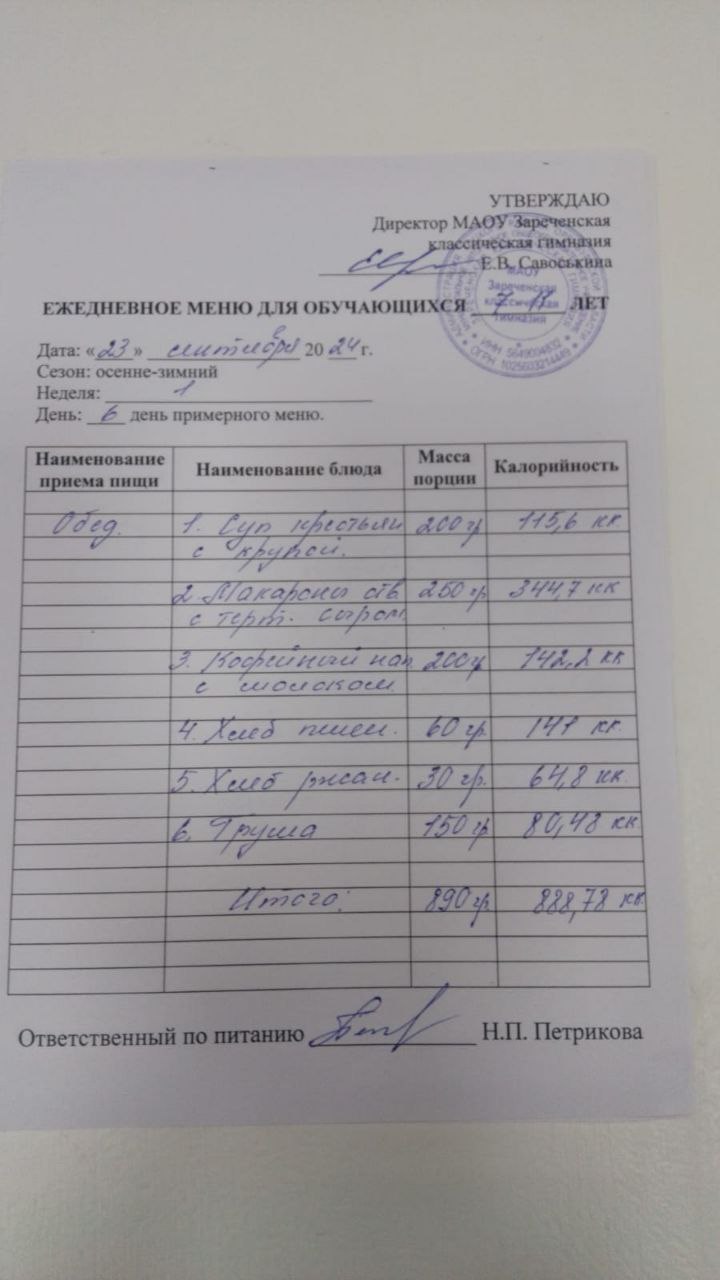 УТВЕРЖДАЮ
Директор МАОУ Зареченская
классическая гимназия
Е.В. Савоськина
МАОУ
Зареченская
классическая
гимназия
ИНН 5649004832
ОГРН 1025603214449
ЕЖЕДНЕВНОЕ МЕНЮ ДЛЯ ОБУЧАЮЩИХСЯ 7 ЛЕТ
Дата: «23» сентября 2024 г.
Сезон: осенне-зимний
Неделя: 1
День: 6 день примерного меню.
Наименование приема пищи Наименование блюда Масса порции Калорийность
Обед. 1. Суп крестьян 200 гр 115,6 кк.
с крупой.
2. Макароны отв 250 гр 344,7 кк
с терт. сыром
3. Кофейный нап 200 гр 142,2 кк
с молоком
4. Хлеб пшен. 60 гр. 141 кк.
5. Хлеб ржан. 30 гр. 64,8 кк.
6. Груша 150 гр 80,48 кк
Итого: 890 гр 888,78 кк.
Ответственный по питанию Н.П. Петрикова